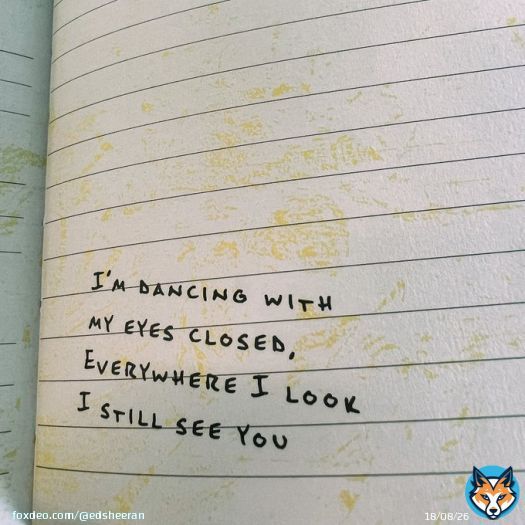 I'M DANCING WITH
MY EYES CLOSED,
EVERYWHERE I LOOK
I STILL SEE YOU
foxdeo.com/@edsheeran
18/08/26